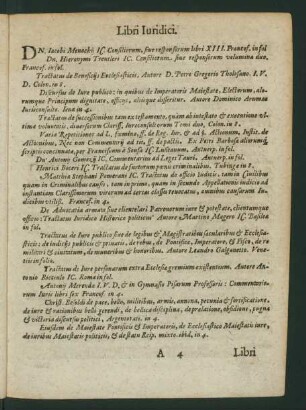 Libri Iuridici.
DN. Iacobi Menochii IC. Consiliorum, sive responsorum libri XIII. Francof. in fol
Dn. Hieronymi Treutleri IC. Consiliorum, sive responsorum volumina duo,
Francof. in fol.
Tractatus de Beneficijs Ecclesiasticis, Autore D. Petro Gregorio Tholosano. I. V.
D. Colon. in 8.
Discursus de Iure publico: in quibus de Imperatoris Maiestate, Electorum, alio-
rumque Principum dignitate, officijs, alijsque disseritur. Autore Dominico Arumæo
Iurisconsulto. Ienæ in 4.
Tractatus de successionibus tam ex testamento, quam ab intestato & extentione ul-
timæ voluntatis, in
Variæ Repetitiones ad l. 1. ff. de Reg. Iur. & ad §. Actionum, Instit. de
Actionibus, Nec non Commentarij ad tit. ff. de pactis. Ex Petri Barbosæ aliorumque
scriptis concinnatæ, per Franciscum à Sande IC. Antverp. in fol.
Dn. Antonij IC. Commentarius ad Leges Tauri. Antverp. in fol.
Henrici Boceri IC. Tractatus de furtorum pœnis criminalibus. Tubingæ in 8.
Martini Stephani Pomerani IC. Tractatus de officio Iudicis, tam in Civilibus
quam in Criminalibus causis, tam in prima, quam in secunda Appellationis iudicij ad
instantiam Clarissimorum virorum ad certas tractatus, omnibus causarum Iu-
dicibus utilis. Francof. in 4.
De Advocatia armata sive clientelari Patronorum iure & potestate, clientumque
officio: Tractatus Iuridico Historico politicus Autore Martino Magero IC. Basileæ
in fol.
Tractatus de Iure publico sive de legibus & Magistratibus sæcularibus & Ecclesia-
sticis: de iudicijs publicis & privatis, de rebus, de Pontifice, Imperatore, & Fisco, de re
militari & civitatum, de muneribus & honoribus. Autore Leandro Galganetto. Vene-
tijs in folio.
Tractatus de Iure personarum extra Ecclesiæ gremium existentium. Autore Anto-
nio Ricciulo IC. Romæ in fol.
Antonij Merendæ I. V. D. & in Gymnasio Pisarum Professoris: Commentario-
rum Iuris libri sex Francof. in 4.
Christ. Besoldi de pace, belli, militibus, armis, annona, pecunia & fortificatione,
de iure & rationibus belli gerendi, de bellica disciplina, de præliatione, obsidione, fuga
& victoria discursus politici, Argentorati. in 4.
Eiusdem de Maiestate Pontificis & Imperatoris, de Ecclesiastico Maiestatis iure,
de iuribus Maiestatis politicis, & de statu Reip. mixto. ibid. in 4.
A 4 Libri